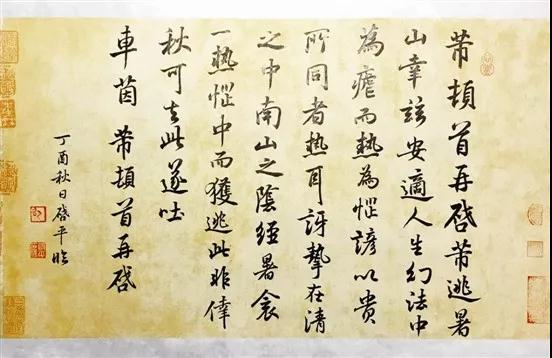 芾頓首再啓芾逃暑
山幸茲安適人生幻法中
為虐而熱為惱諺以貴
所同者熱耳訝挈在清
之中南山之陰經暑衾
一熱惱中而獲逃此非倖
秋可去此遂吐
車茵 芾頓首再啓
丁酉秋日啓平臨